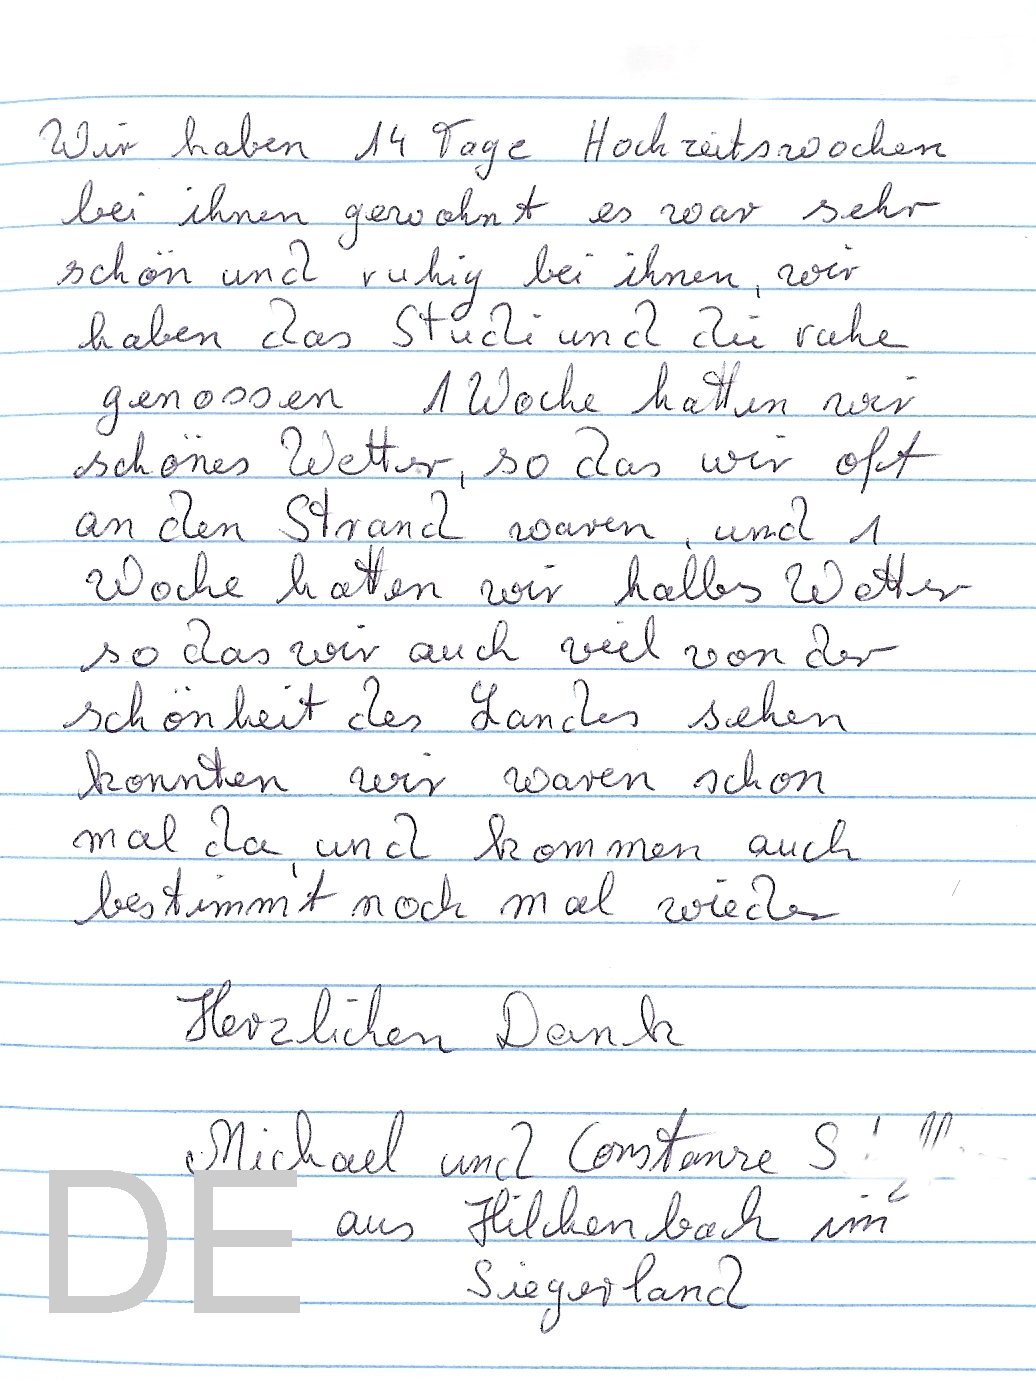 Wir haben 14 Tage Hochzeitswochen
bei ihnen gewohnt es war sehr
schön und ruhig bei ihnen, wir
haben das Studi und die ruhe
genossen 1 Woche hatten wir
schönes Wetter, so das wir oft
an den Strand waren, und 1
Woche hatten wir halbes Wetter
so das wir auch viel von der
schönheit des Landes sehen
konnten wir waren schon
mal da, und kommen auch
bestimmt noch mal wieder
Herzlichen Dank
Michael und Constanze S
aus Hilchenbach im
Siegerland
DE